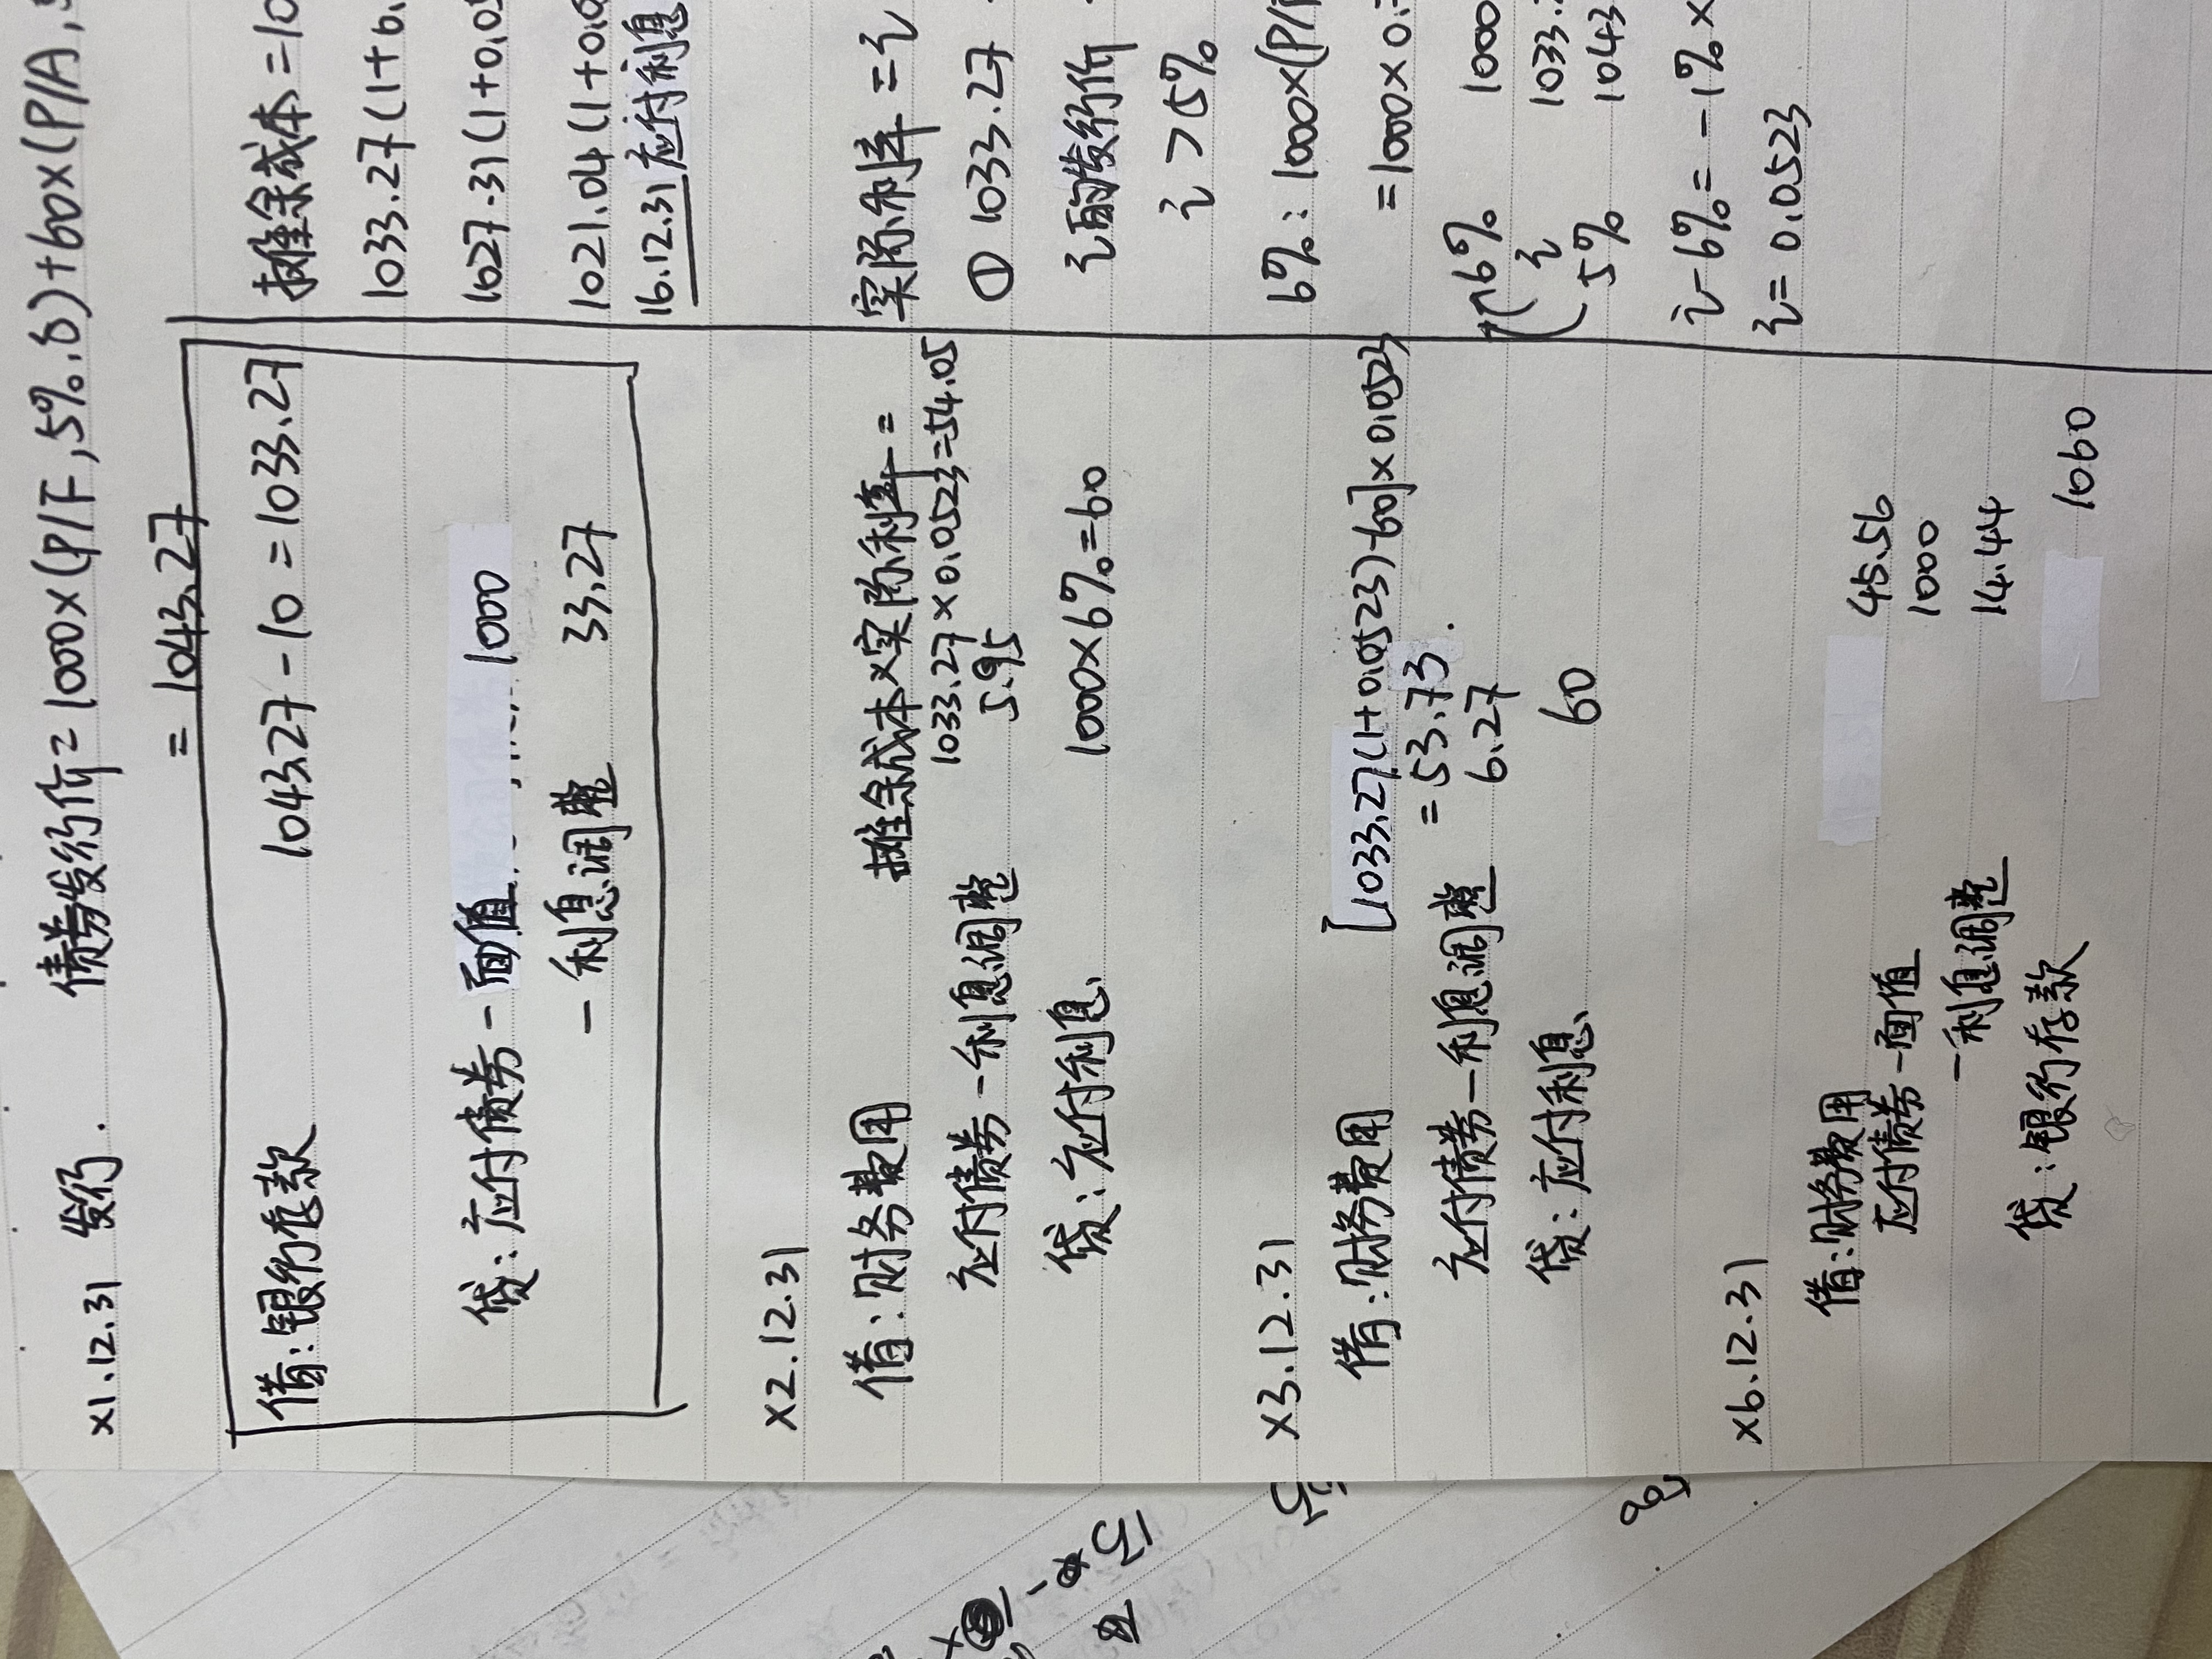 x1.12.31 发行. 债券发行价=1000×(P/F,5%,5)+60×(P/A,5
= 1043.27
借:银行存款 1043.27-10=1033.27
贷:应付债券-面值 1000
-利息调整 33.27
x2.12.31
借:财务费用 摊余成本×实际利率=
1033.27×0.0523=54.05
应付债券-利息调整 5.95
贷:应付利息 1000×6%=60
x3.12.31
借:财务费用 [1033.27(1+0.0523)-60]×0.0523
=53.73.
应付债券-利息调整 6.27
贷:应付利息 60
x6.12.31
借:财务费用 45.56
应付债券-面值 1000
-利息调整 14.44
贷:银行存款 1060
摊余成本=10
1033.27(1+0.
1027.31(1+0.05
1021.04(1+0.0
16.12.31应付利息
实际利率=i
① 1033.27
i的发行价
i>5%
6%:1000×(P/F
=1000×0.7
6% 1000
i 1033.2
5% 1043
i-6%=-1%×
i=0.0523